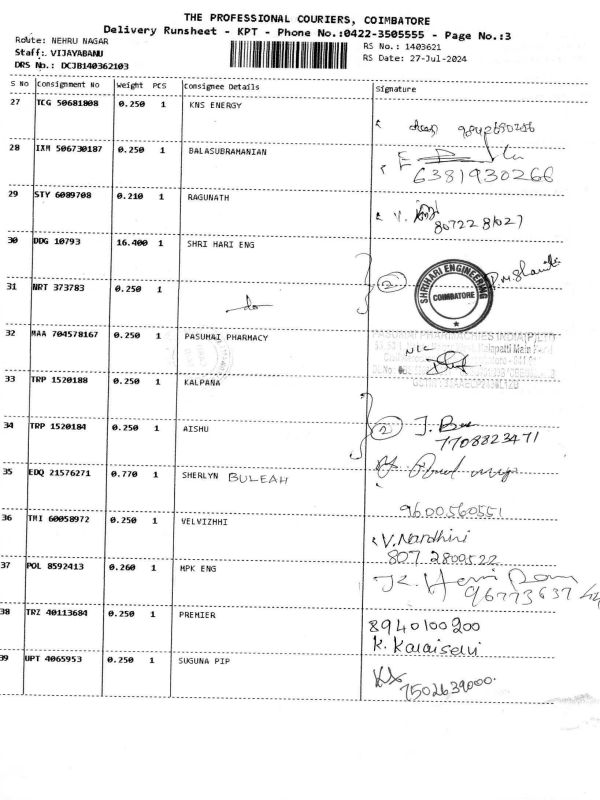 THE PROFESSIONAL COURIERS, COIMBATORE
Delivery Runsheet - KPT - Phone No.:0422-3505555 - Page No.:3
Route: NEHRU NAGAR
RS No.: 1403621
Staff: VIJAYABANU
RS Date: 27-Jul-2024
DRS No.: DCJB140362103
S No Consignment No Weight PCS Consignee Details Signature
27 TCG 50681808 0.250 1 KNS ENERGY
28 IXM 506730187 0.250 1 BALASUBRAMANIAN
6381930266
29 STY 6089708 0.210 1 RAGUNATH
30 DDG 10793 16.400 1 SHRI HARI ENG 2
SHRIHARI ENGINEERING COIMBATORE
31 NRT 373783 0.250 1 do
32 MAA 704578167 0.250 1 PASUMAI PHARMACY
33 TRP 1520188 0.250 1 KALPANA
34 TRP 1520184 0.250 1 AISHU 2
7708823471
35 EDQ 21576271 0.770 1 SHERLYN BULEAH
9600560551
36 TMI 60058972 0.250 1 VELVIZHHI
V.Nardhini
807 2800522
37 POL 8592413 0.260 1 MPK ENG
38 TRZ 40113684 0.250 1 PREMIER
8940100200
K. Kalaiselvi
39 UPT 4065953 0.250 1 SUGUNA PIP
7502639000.